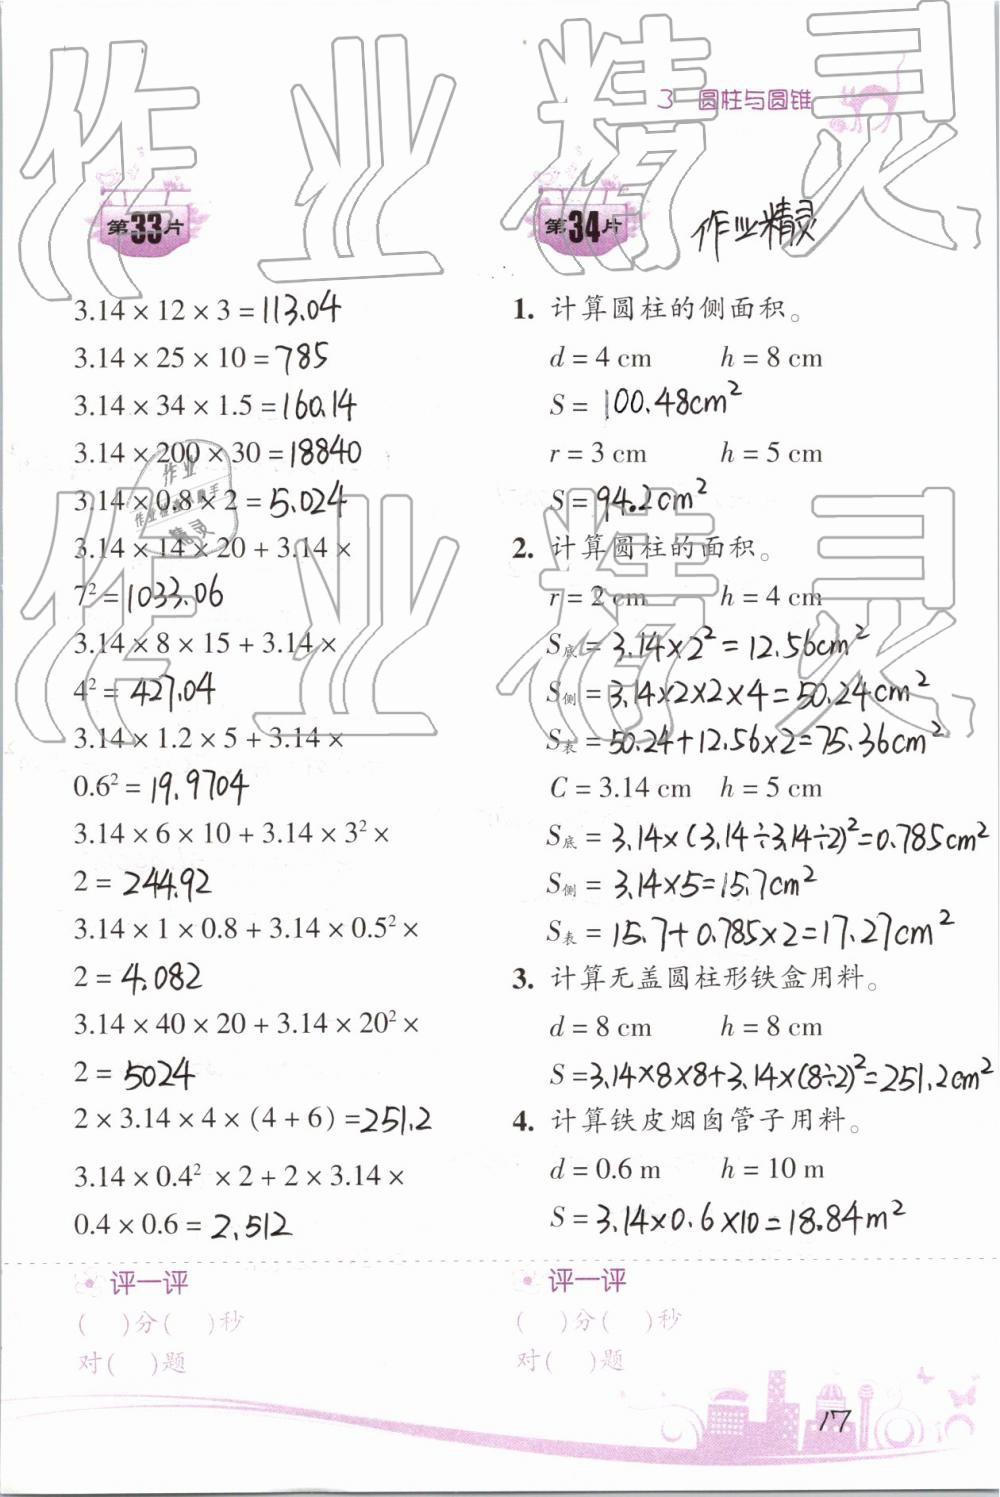 3 圆柱与圆锥
作业精灵
第33片
3.14 × 12 × 3 = 113.04
3.14 × 25 × 10 = 785
3.14 × 34 × 1.5 = 160.14
3.14 × 200 × 30 = 18840
3.14 × 0.8 × 2 = 5.024
3.14 × 14 × 20 + 3.14 ×
7² = 1033.06
3.14 × 8 × 15 + 3.14 ×
4² = 427.04
3.14 × 1.2 × 5 + 3.14 ×
0.6² = 19.9704
3.14 × 6 × 10 + 3.14 × 3² ×
2 = 244.92
3.14 × 1 × 0.8 + 3.14 × 0.5² ×
2 = 4.082
3.14 × 40 × 20 + 3.14 × 20² ×
2 = 5024
2 × 3.14 × 4 × (4 + 6) = 251.2
3.14 × 0.4² × 2 + 2 × 3.14 ×
0.4 × 0.6 = 2.512
评一评
( )分( )秒
对( )题
第34片
作业精灵
1. 计算圆柱的侧面积。
d = 4 cm h = 8 cm
S = 100.48cm²
r = 3 cm h = 5 cm
S = 94.2cm²
2. 计算圆柱的面积。
r = 2 cm h = 4 cm
S底 = 3.14×2² = 12.56cm²
S侧 = 3.14×2×2×4 = 50.24cm²
S表 = 50.24+12.56×2 = 75.36cm²
C = 3.14 cm h = 5 cm
S底 = 3.14×(3.14÷3.14÷2)² = 0.785cm²
S侧 = 3.14×5 = 15.7cm²
S表 = 15.7+0.785×2 = 17.27cm²
3. 计算无盖圆柱形铁盒用料。
d = 8 cm h = 8 cm
S = 3.14×8×8+3.14×(8÷2)² = 251.2cm²
4. 计算铁皮烟囱管子用料。
d = 0.6 m h = 10 m
S = 3.14×0.6×10 = 18.84m²
评一评
( )分( )秒
对( )题
17
作业精灵